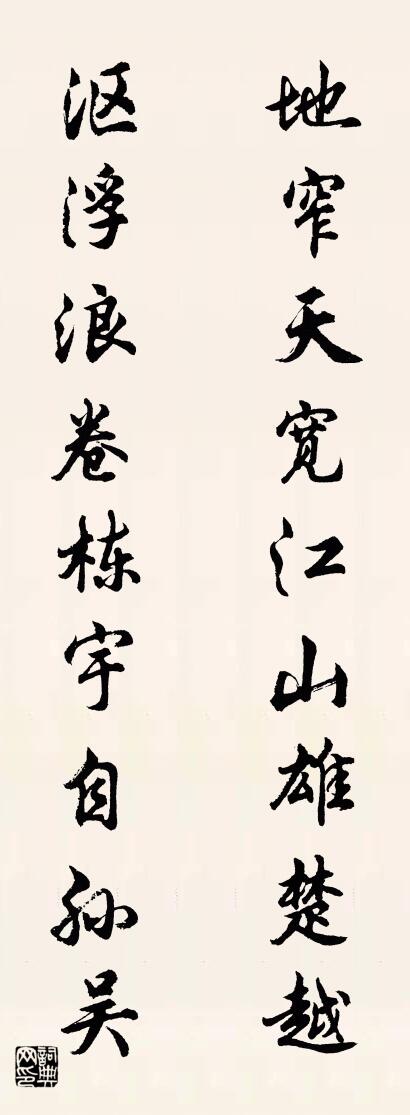 地窄天宽江山雄楚越
沤浮浪卷栋宇自孙吴
詞典網印